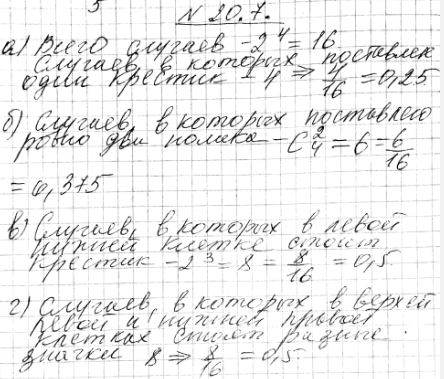 5
N 20.7.
а) Всего случаев - 2⁴ = 16
Случаев, в которых поставлен
один крестик - 4 ⇒ 4/16 = 0,25
б) Случаев, в которых поставлено
ровно два нолика - C²₄ = 6 = 6/16
= 0,375
в) Случаев, в которых в левой
нижней клетке стоит
крестик - 2³ = 8 = 8/16 = 0,5
г) Случаев, в которых в верхней
левой и нижней правой
клетках стоят разные
значки 8 ⇒ 8/16 = 0,5